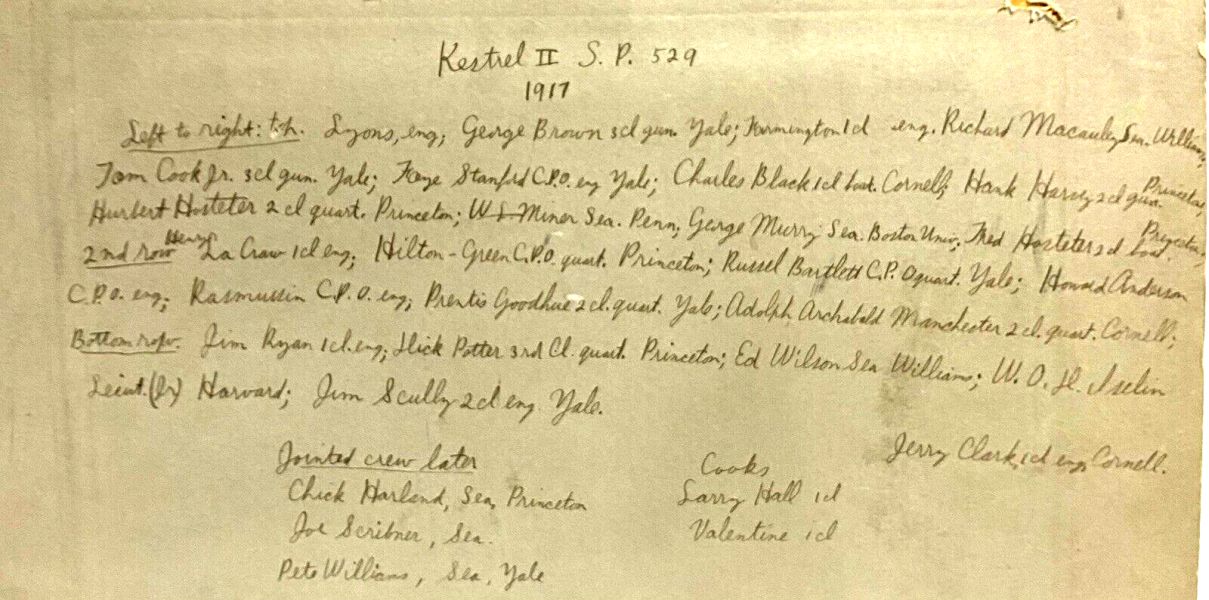 Kestrel II S. P. 529
1917
Left to right: t.h. Lyons, eng; George Brown 3 cl gun. Yale; Farmington 1 cl eng. Richard Macauley Sea. Williams,
Tom Cook Jr. 3 cl gun. Yale; Faye Stanford C.P.O. eng Yale; Charles Black 1 cl boat. Cornell; Hank Harvey 2 cl gun. Princeton,
Hurbert Hosteter 2 cl quart. Princeton; W S Miner Sea. Penn; George Murry Sea. Boston Univ; Fred Hosteter 2 cl boat.
2nd row Henry La Craw 1 cl eng; Hilton-Green C.P.O. quart. Princeton; Russel Bartlett C.P.O quart. Yale; Howard Anderson
C.P.O. eng; Rasmussin C.P.O. eng; Prentis Goodhue 2 cl. quart. Yale; Adolph Archabald Manchester 2 cl. quart. Cornell;
Bottom row: Jim Ryan 1 cl. eng; Dick Potter 3rd Cl. quart. Princeton; Ed Wilson Sea Williams; W. O. D. Iselin
Leiut. (Jr) Harvard; Jim Scully 2 cl eng Yale.
Jerry Clark, 1 cl eng, Cornell.
Jointed crew later
Chick Harland, Sea, Princeton
Joe Scribner, Sea.
Pete Williams, Sea, Yale
Cooks
Larry Hall 1 cl
Valentine 1 cl